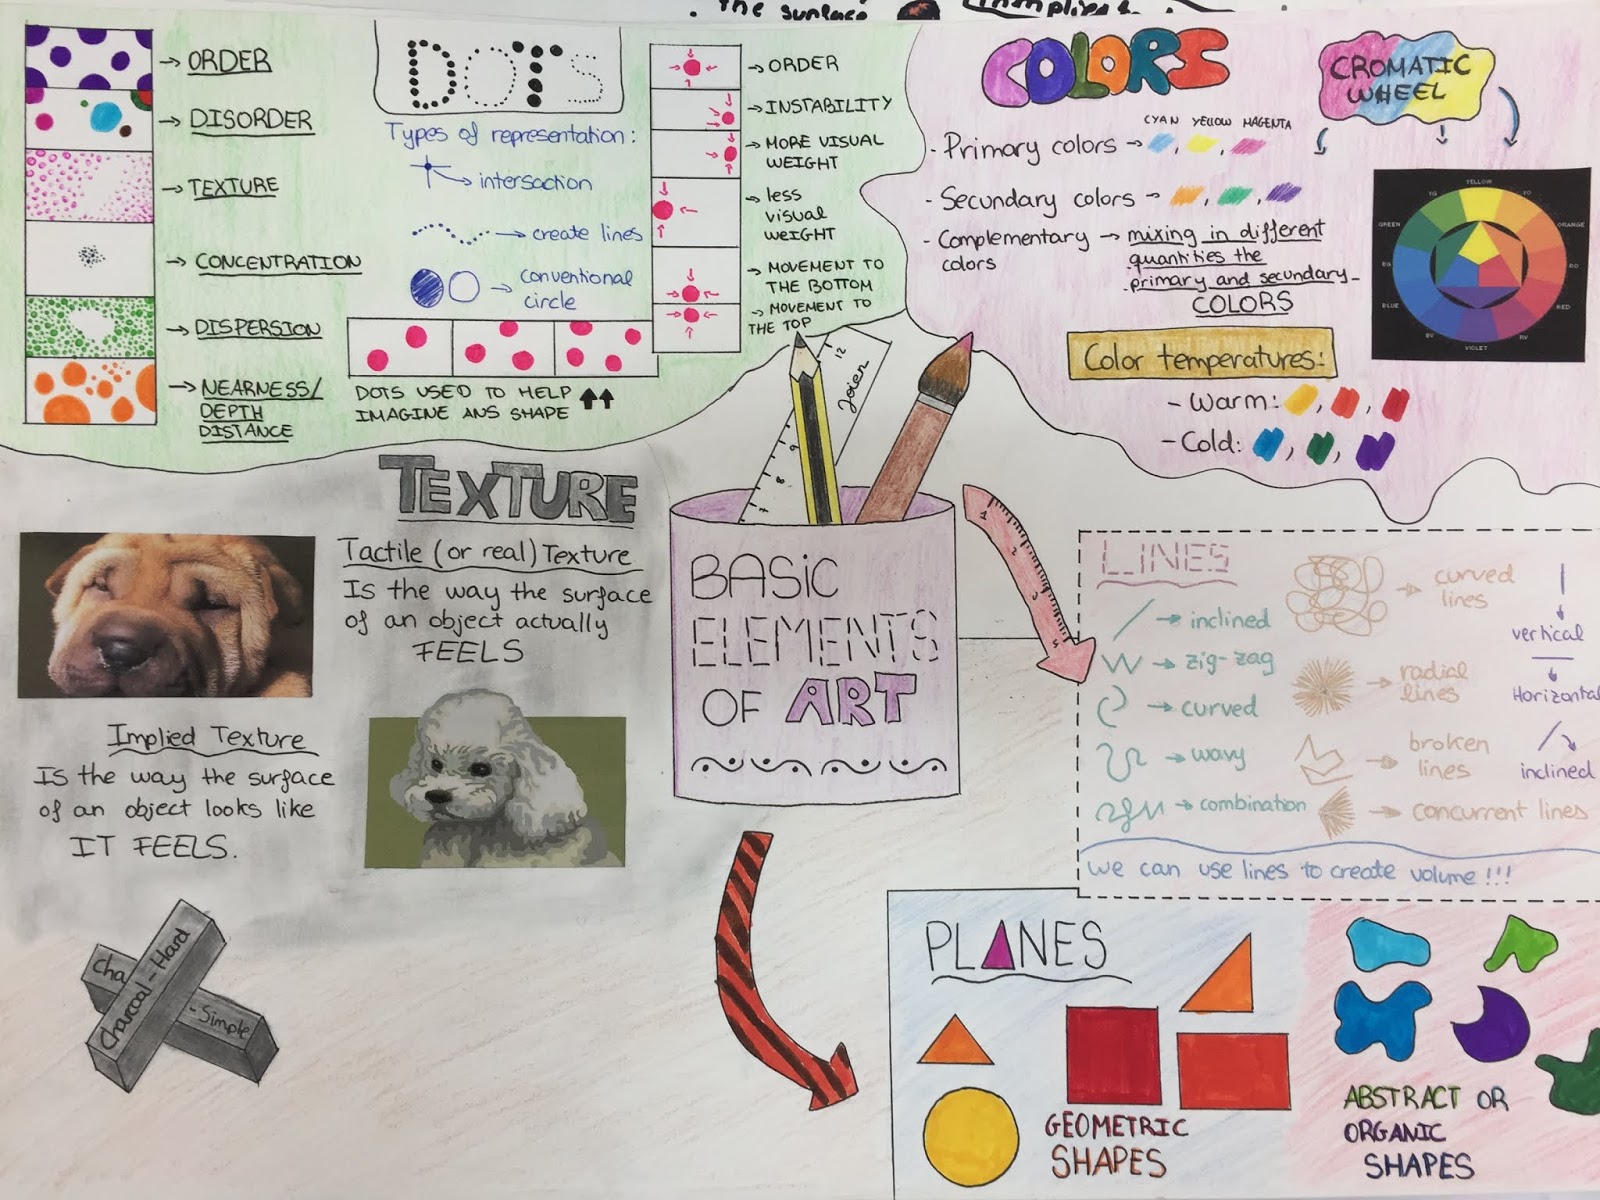 the surface
DOTS
ORDER
DISORDER
TEXTURE
CONCENTRATION
DISPERSION
NEARNESS/
DEPTH
DISTANCE
Types of representation:
intersaction
create lines
conventional
circle
DOTS USED TO HELP
IMAGINE ANS SHAPE
ORDER
INSTABILITY
MORE VISUAL
WEIGHT
less
visual
weight
MOVEMENT TO
THE BOTTOM
MOVEMENT TO
THE TOP
COLORS
CROMATIC
WHEEL
CYAN YELLOW MAGENTA
- Primary colors
- Secundary colors
- Complementary
colors
mixing in different
quantities the
primary and secundary
COLORS
YELLOW
YG
YO
GREEN
ORANGE
BG
RO
BLUE
RED
BV
RV
VIOLET
Color temperatures:
- Warm:
- Cold:
TEXTURE
Tactile (or real) Texture
Is the way the surface
of an object actually
FEELS
Implied Texture
Is the way the surface
of an object looks like
IT FEELS.
Cha
Charcoal - Hard
- Simple
12
9
8
Joier
BASiC
ELEMENTS
OF ART
1
2
3
LINES
inclined
zig-zag
curved
wavy
combination
curved
lines
radial
lines
broken
lines
concurrent lines
vertical
Horizontal
inclined
we can use lines to create volume!!!
PLANES
GEOMETRIC
SHAPES
ABSTRACT OR
ORGANIC
SHAPES